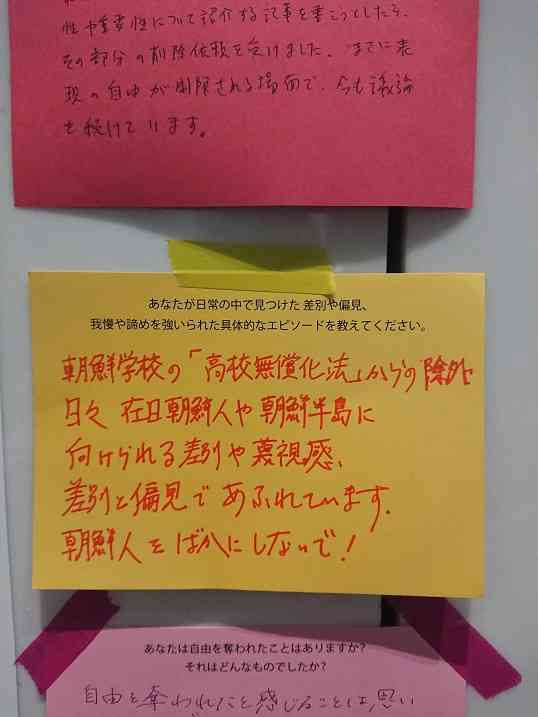 性や重要性について紹介する記事を書こうとしたら、
その部分の削除依頼を受けました。まさに表
現の自由が制限される場面で、今も議論
を続けています。
あなたが日常の中で見つけた 差別や偏見、
我慢や諦めを強いられた具体的なエピソードを教えてください。
朝鮮学校の「高校無償化法」からの除外
日々 在日朝鮮人や朝鮮半島に
向けられる差別や蔑視感、
差別と偏見であふれています.
朝鮮人をばかにしないで!
あなたは自由を奪われたことはありますか?
それはどんなものでしたか?
自由を奪われたと感じることは思い